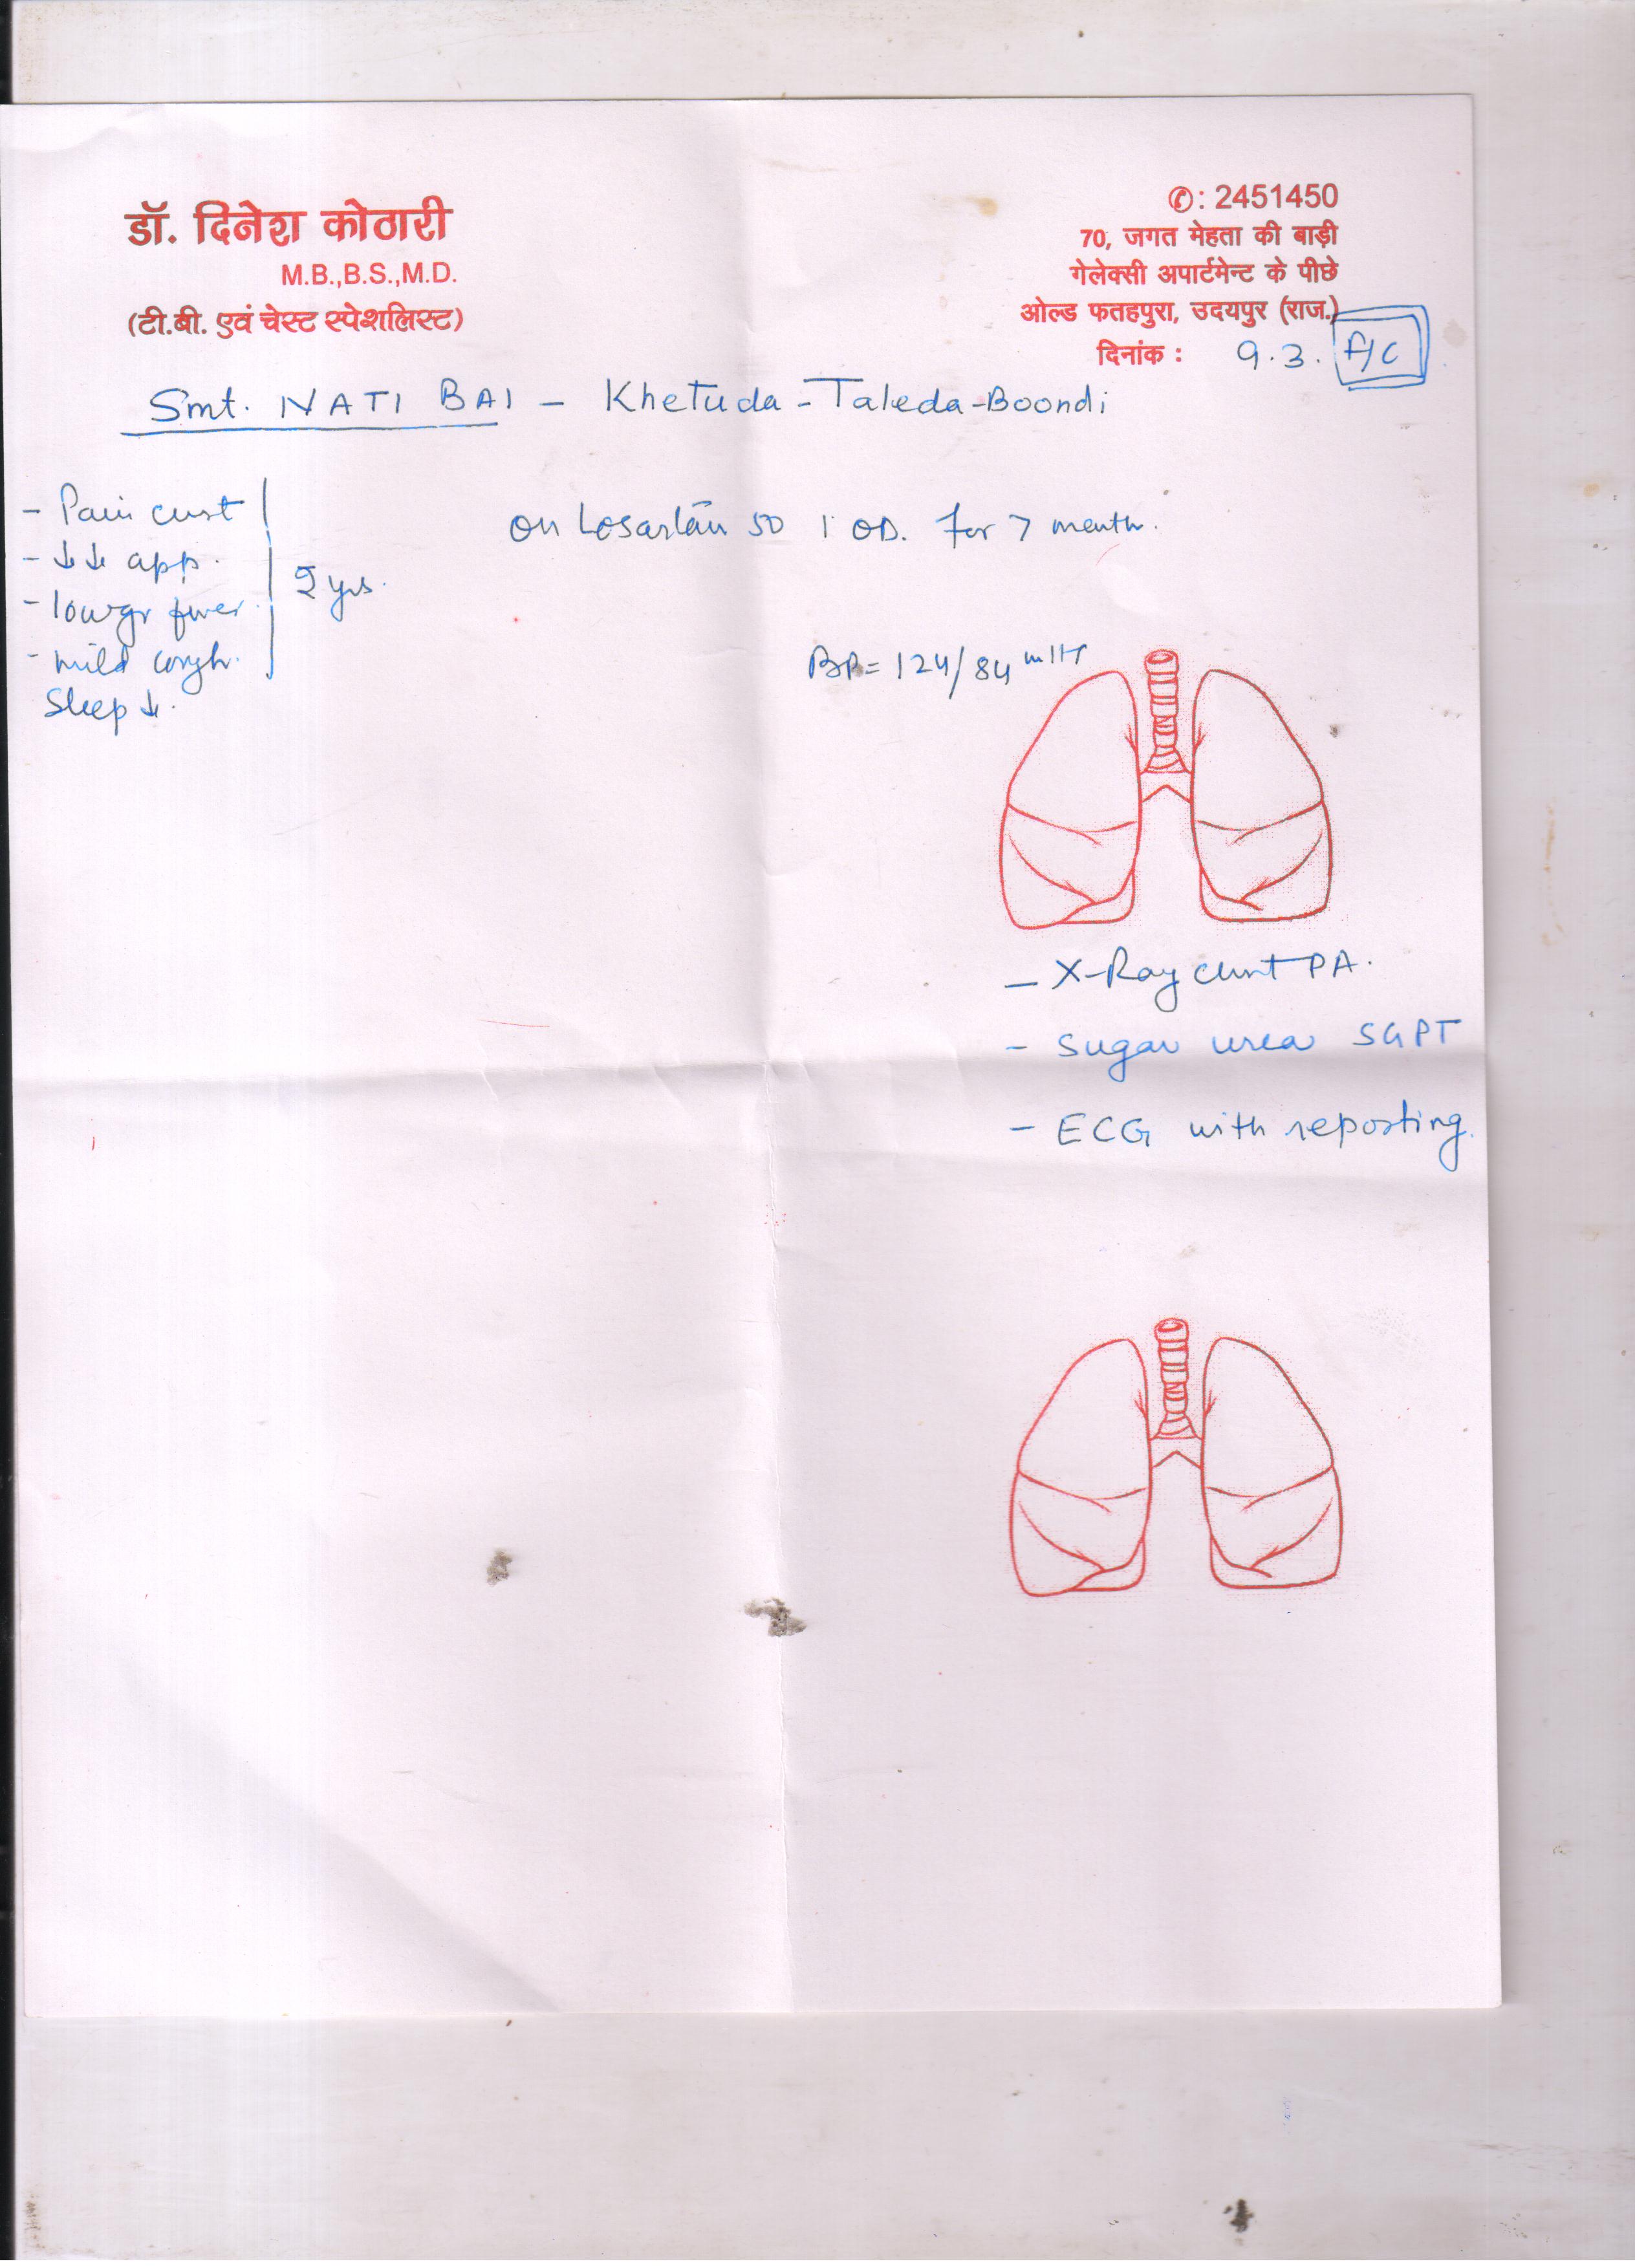 डॉ. दिनेश कोठारी
M.B.,B.S.,M.D.
(टी.बी. एवं चेस्ट स्पेशलिस्ट)
✆: 2451450
70, जगत मेहता की बाड़ी
गेलेक्सी अपार्टमेन्ट के पीछे
ओल्ड फतहपुरा, उदयपुर (राज.)
दिनांक : 9.3. F/C
Smt. NATI BAI - Khetuda - Taleda-Boondi
- Pain chest
- ↓↓ app.
- low gr fever.
- mild cough.
Sleep ↓.
2 yrs.
on Losartan 50 1 OD. for 7 month.
BP= 124/84
- X-Ray chest PA.
- Sugar urea SGPT
- ECG with reporting.